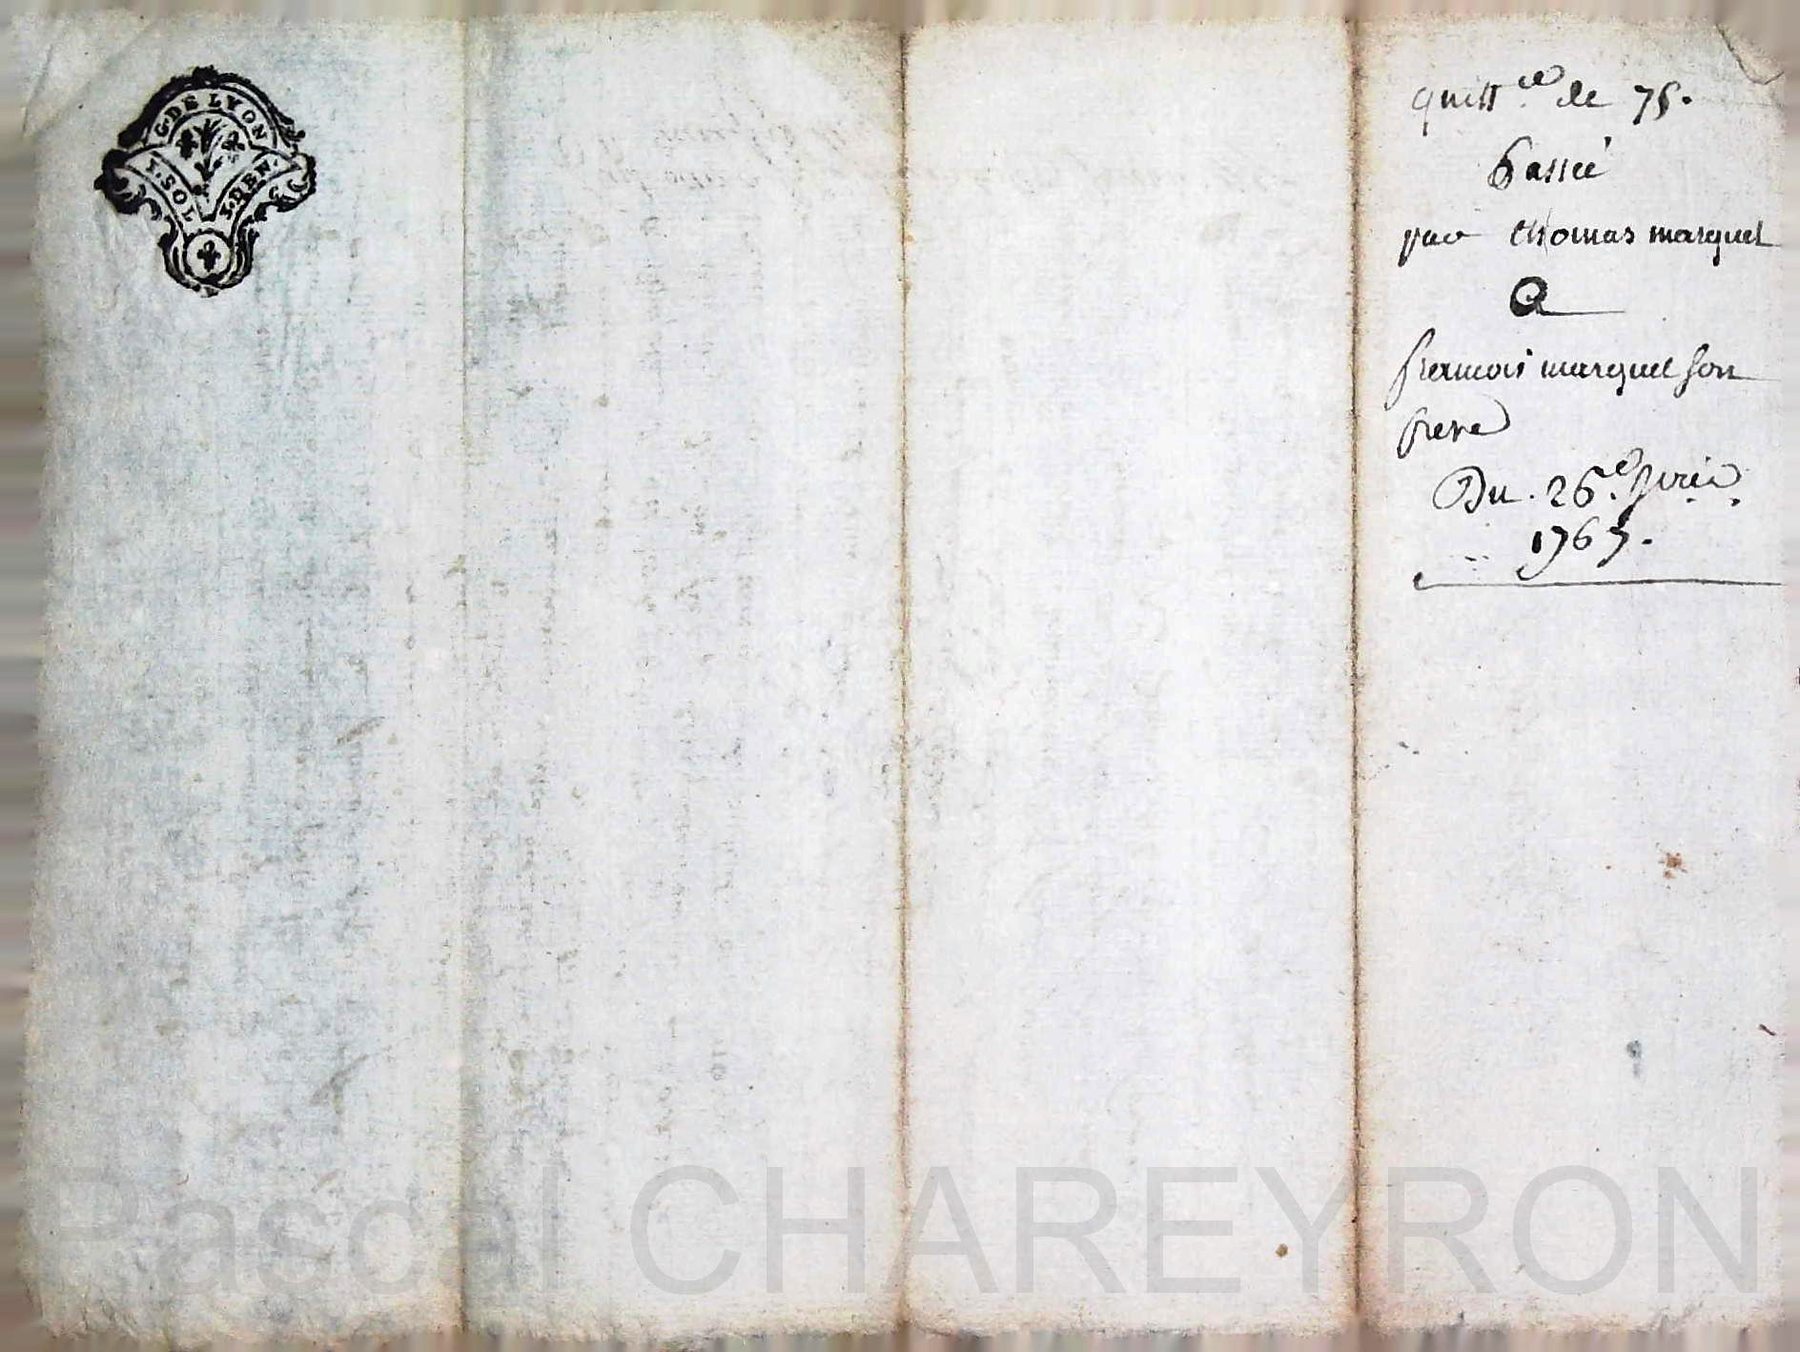 G. DE LYON
1. SOL 4. DEN.
quitt.ce de 75.
Passée
par thomas marquet
A
francois marquet son
frere
Du. 26.e
Pascal CHAREYRON